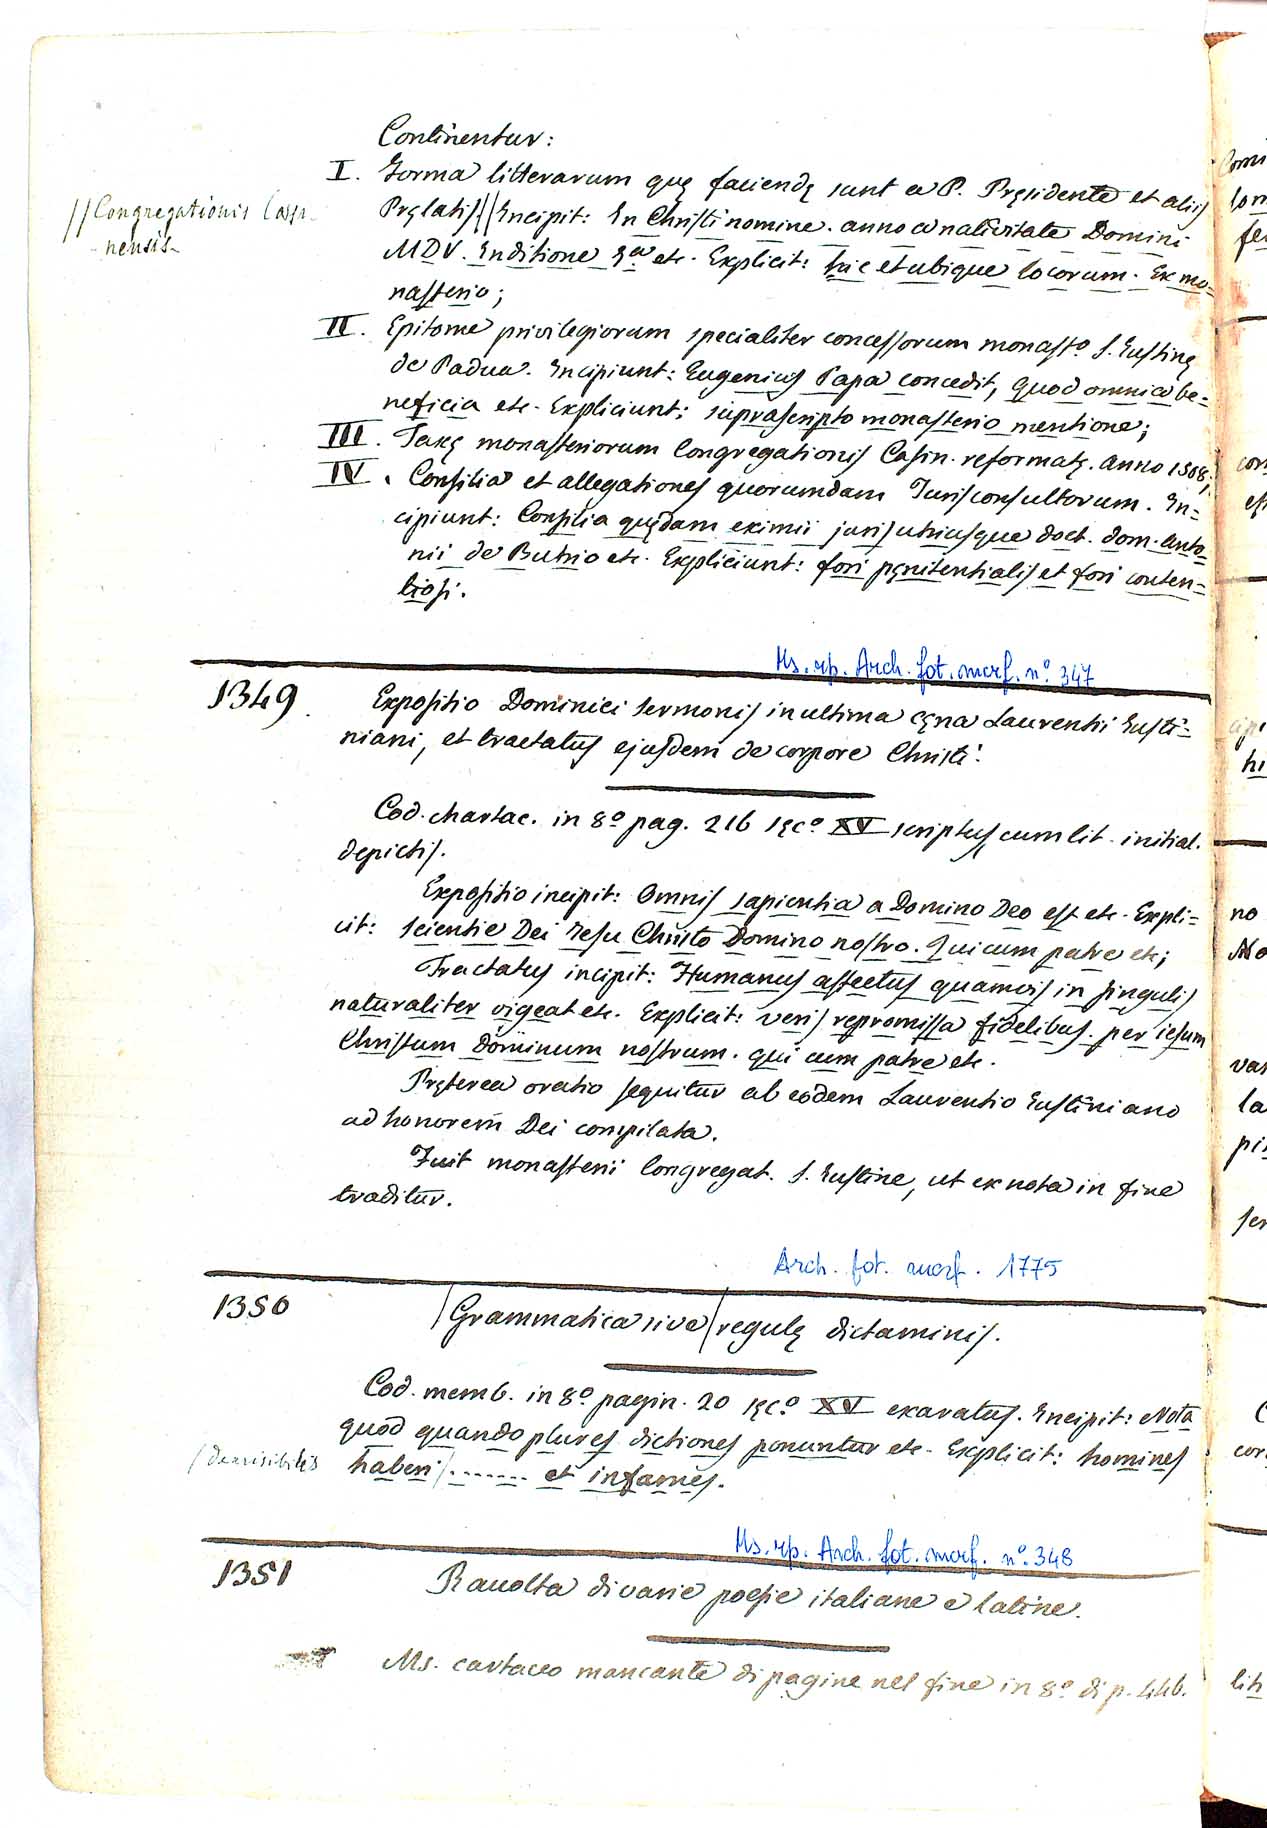 Continentur:
I. Forma litterarum quę faciendę sunt a P. Pręsidente et aliis
//Congregationis Cassi-
nensis-
Pręlatis// Incipit: In Christi nomine. anno a nativitate Domini
MDV. Inditione 8.ª etc. Explicit: hic et ubique locorum. Ex mo=
nasterio;
II. Epitome privilegiorum specialiter concessorum monastº S. Iustinę
de Padua. Incipiunt: Eugenius Papa concedit, quod omnia be=
neficia etc. Expliciunt: suprascripto monasterio mentione;
III. Taxę monasteriorum Congregationis Casin. reformatę. anno 1508;
IV. Consilia et allegationes quorumdam Iurisconsultorum. In=
cipiunt: Consilia quędam eximii juris utriusque doct. dom. Anto
nii de Butrio etc. Expliciunt: fori pęnitentialis et fori conten=
tiosi.
Ms. rip. Arch. fot. morf. nº. 347
1349. Expositio Dominici sermonis in ultima cęna Laurentii Iusti=
niani, et tractatus ejusdem de corpore Christi.
Cod. chartac. in 8º pag. 216 sęcº XV scriptus cum lit. initial.
depictis.
Expositio incipit: Omnis sapientia a Domino Deo est etc. Expli=
cit: scientie Dei Iesu Christo Domino nostro. Qui cum patre etc;
Tractatus incipit: Humanus affectus quamvis in singulis
naturaliter vigeat etc. Explicit: veris repromissa fidelibus. per iesum
Christum dominum nostrum. qui cum patre etc.
Pręterea oratio sequitur ab eodem Laurentio Iustiniano
ad honorem Dei compilata.
Fuit monasterii Congregat. S. Iustine, ut ex nota in fine
traditur.
Arch. fot. morf. 1775
1350 /Grammatica sive/ regulę dictaminis.
Cod. memb. in 8º pagin. 20 sęcº XV exaratus. Incipit: Nota
quod quando plures dictiones ponuntur etc. Explicit: homines
haberi/....... et infames.
Ms. rip. Arch. fot. morf. nº. 348
1351 Raccolta di varie poesie italiane e latine.
Ms. cartaceo mancante di pagine nel fine in 8º di p. 446.